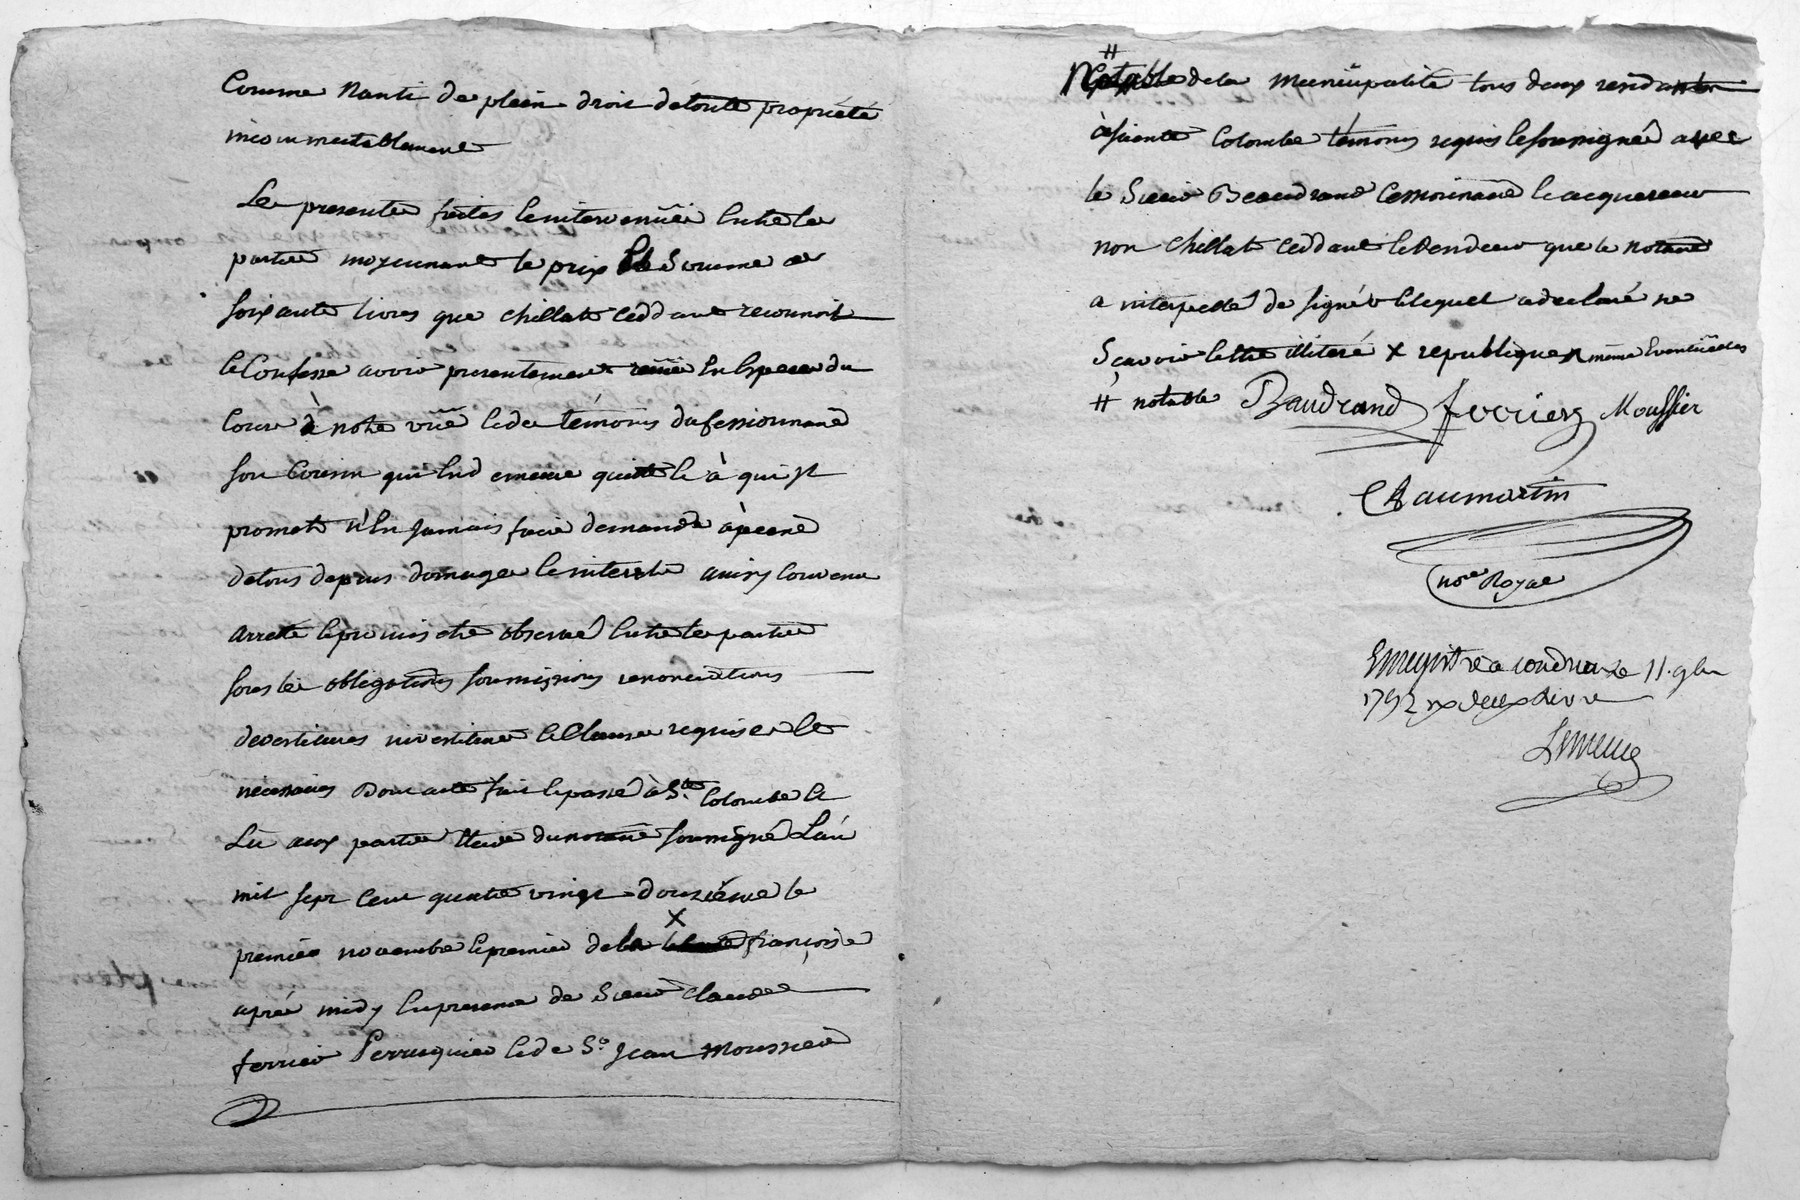 Comme nanti de plein droit de toute propriété
incommutablement
Les presentes faites & intervenües Entre les
parties moyennant le prix & Somme de
soixante livres que chillat ceddant reconnoit
& Confesse avoir presentement reçüe En Especes du
Cours à notre vüe & des témoins du cessionnaire
son Cousin qu'il En demeure quitte & à qui il
promet n'En jamais faire demande à peine
de tous depens domages & interets ainsy convenu
arreté & promis etre observé Entre les parties
sous les obligations soumissions renonciations
devestitures investitures & Clauses requises &
nécessaires Dont acte fait & passé à Ste Colombe &
Lu aux parties Etude du notaire soussigné L'an
mil sept Cent quatre vingt douzième le
premier novembre & premier de la X françoise
après midy En presence de Sieur Claude
ferrier Perruquier & de Sr Jean Moussier
#
Notable de la Municipalité tous deux residants
à Sainte Colombe témoins requis & soussignés avec
le Sieur Beaudrand Cessionnaire & acquereur
non Chillat Ceddant & Vendeur que le notaire
a interpellé de signer & lequel a declaré ne
Sçavoir & etre illiteré X republique même Eventuelles
# notable Baudrand ferrier Moussier
Chaumartin
nore Royal
Enregistré a condrieu le 11. 9bre
1792 rx deux livre